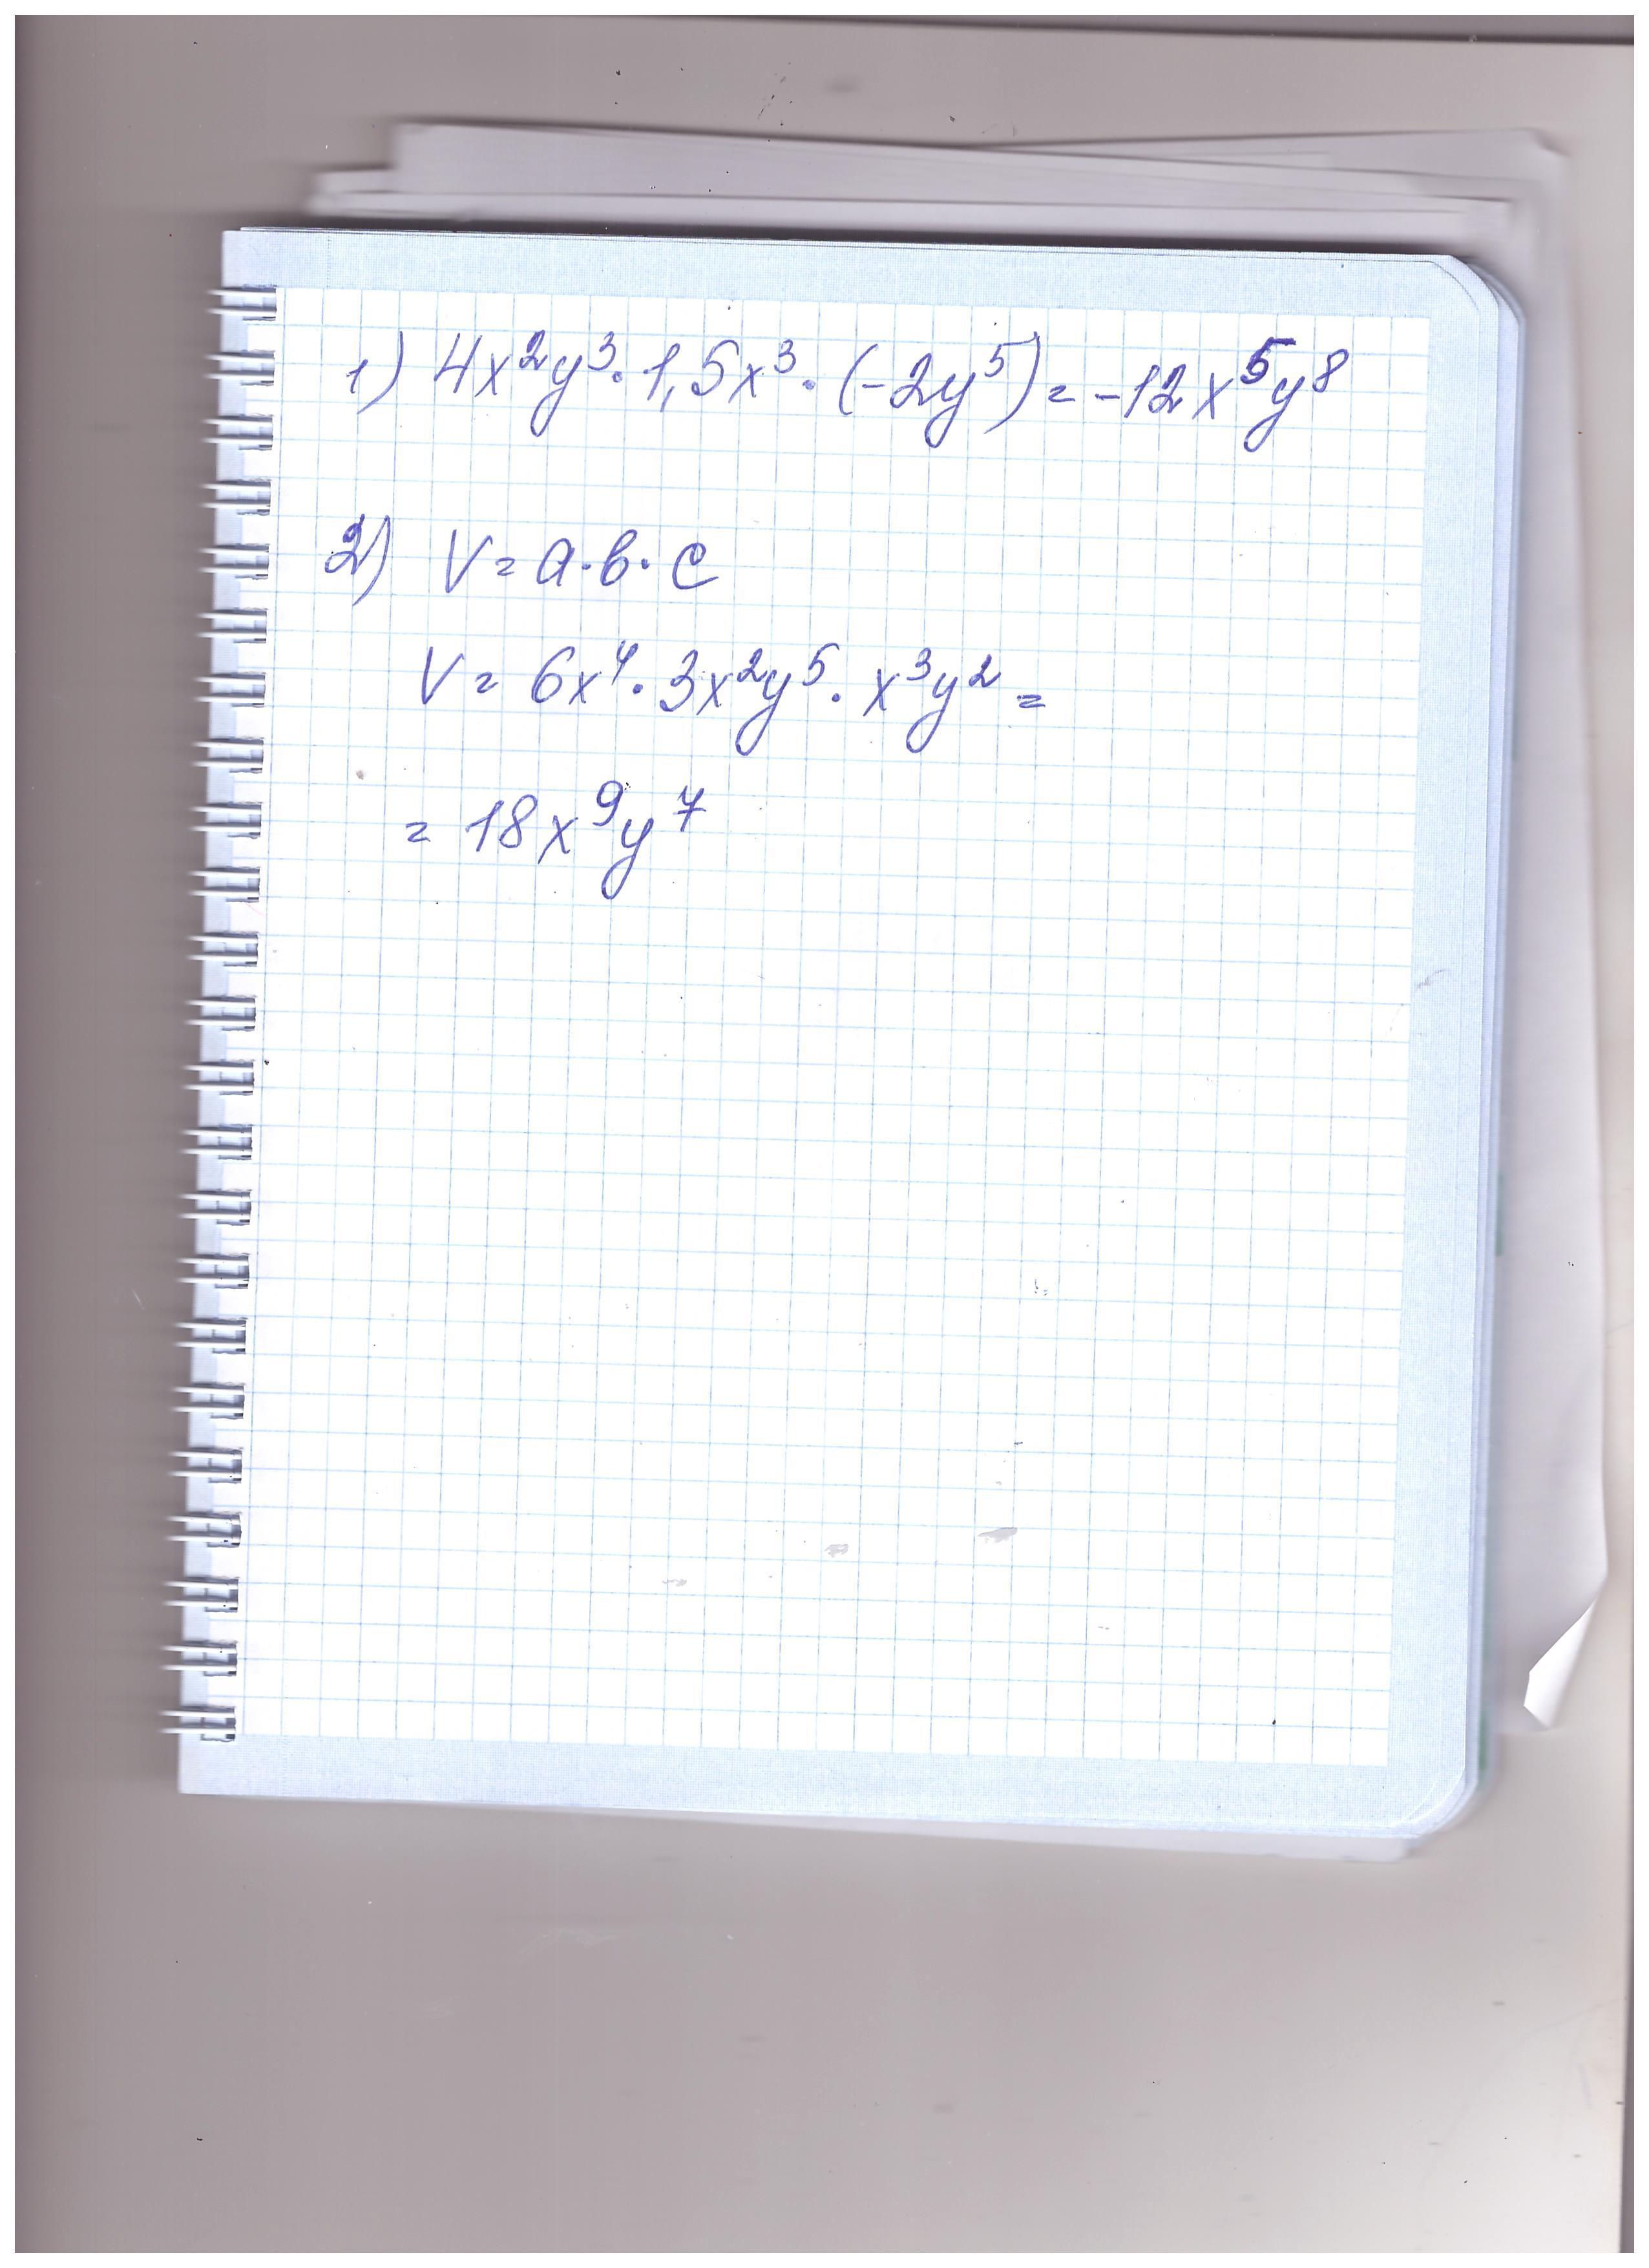 1) 4x²y³·1,5x³·(-2y⁵)=-12x⁵y⁸
2) V=a·в·c
V=6x⁴·3x²y⁵·x³y²=
=18x⁹y⁷